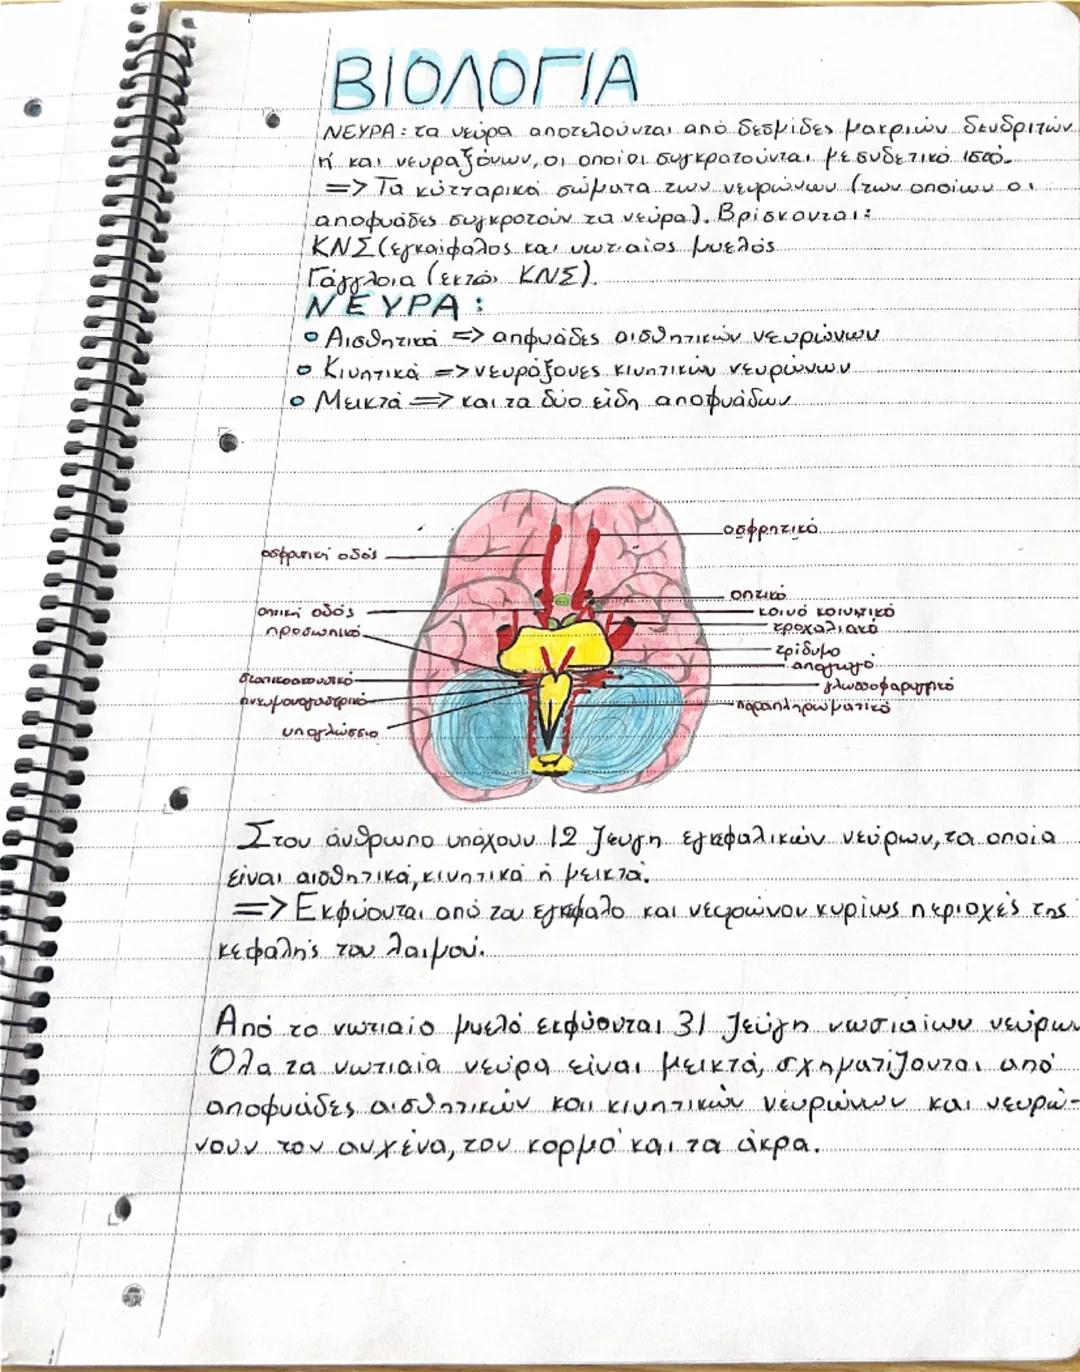 ΒΙΟΛΟΓΙΑ
ΝΕΥΡΑ: τα νεύρα αποτελούνται από δεσμίδες μακριών δενδριτών
ή και νευραξόνων, οι οποίοι συγκρατούνται με συδετικό ιστό.
=> Τα κύτταρικά σώματα των νευρώνων (των οποίων οι
αποφυάδες συγκροτούν τα νεύρα). Βρίσκονται:
ΚΝΣ (εγκαίφαλος και νωτιαίος μυελός
Γάγγλοια (εκτός ΚΝΣ).
ΝΕΥΡΑ:
Αισθητικά => απφυάδες αισθητικών νευρώνων
Κινητικά => νευράξονες κινητικών νευρώνων
Μεικτά => και τα δύο είδη αποφυάδων
οσφρητικό
οσφρητική οδός
οπτικό
οπτική οδός
κοινό κοινητικό
τροχαλιακό
προσωπικό
τρίδυμο
απαγωγό
γλωσσοφαρυγγικό
πνευμονογαστρικό
παραπληρωματικό
υπογλώσσιο
Στον άνθρωπο υπάχουν 12 ζευγη εγκεφαλικών νεύρων, τα οποία
είναι αισθητικά, κινητικά ή μεικτά.
=> Εκφύονται από τον εγκέφαλο και νευρώνον κυρίως περιοχές της
κεφαλής του λαιμού.
Από το νωτιαίο μυελό εκφύονται 31 ζεύγη νωτιαίων νεύρων
Όλα τα νωτιαία νεύρα είναι μεικτά, σχηματίζονται από
αποφυάδες αισθητικών και κινητικών νευρώνων και νευρώ-
νουν τον αυχένα, τον κορμό και τα άκρα.